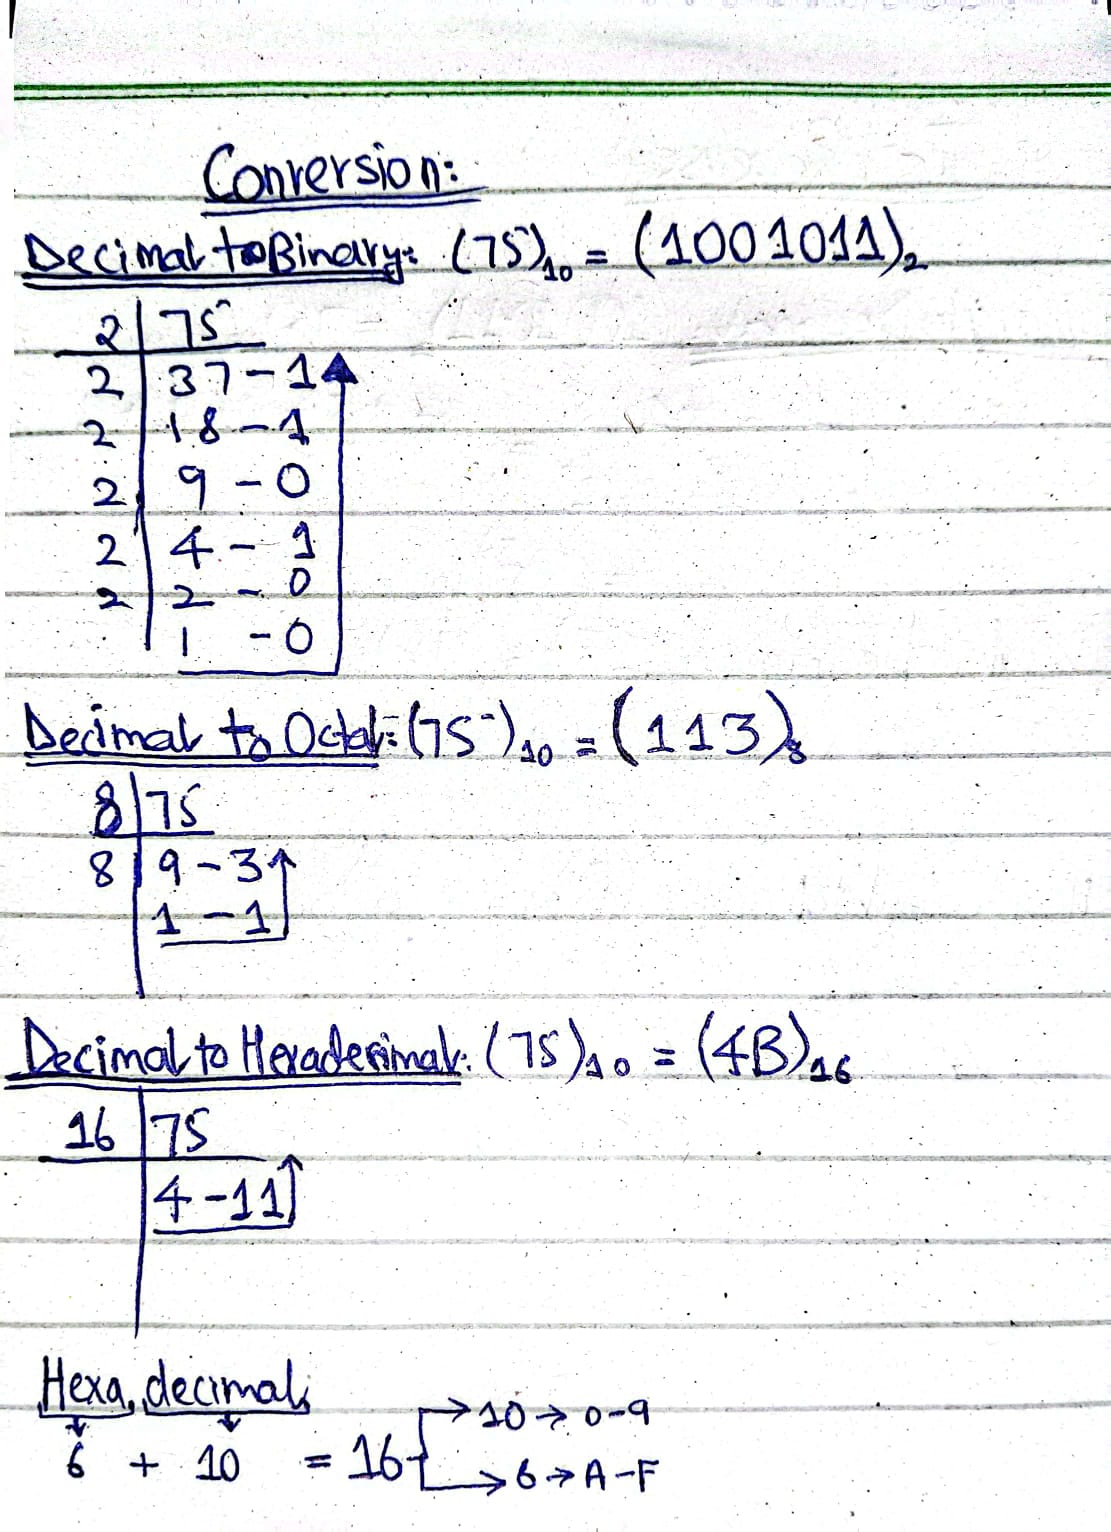 Conversion:
Decimal to Binary: (75)₁₀ = (1001011)₂
2 | 75
2 | 37 - 1
2 | 18 - 1
2 | 9 - 0
2 | 4 - 1
2 | 2 - 0
1 - 0
Decimal to Octal: (75)₁₀ = (113)₈
8 | 75
8 | 9 - 3
1 - 1
Decimal to Hexadecimal: (75)₁₀ = (4B)₁₆
16 | 75
4 - 11
Hexa decimal
→ 10 → 0-9
6 + 10 = 16
→ 6 → A-F